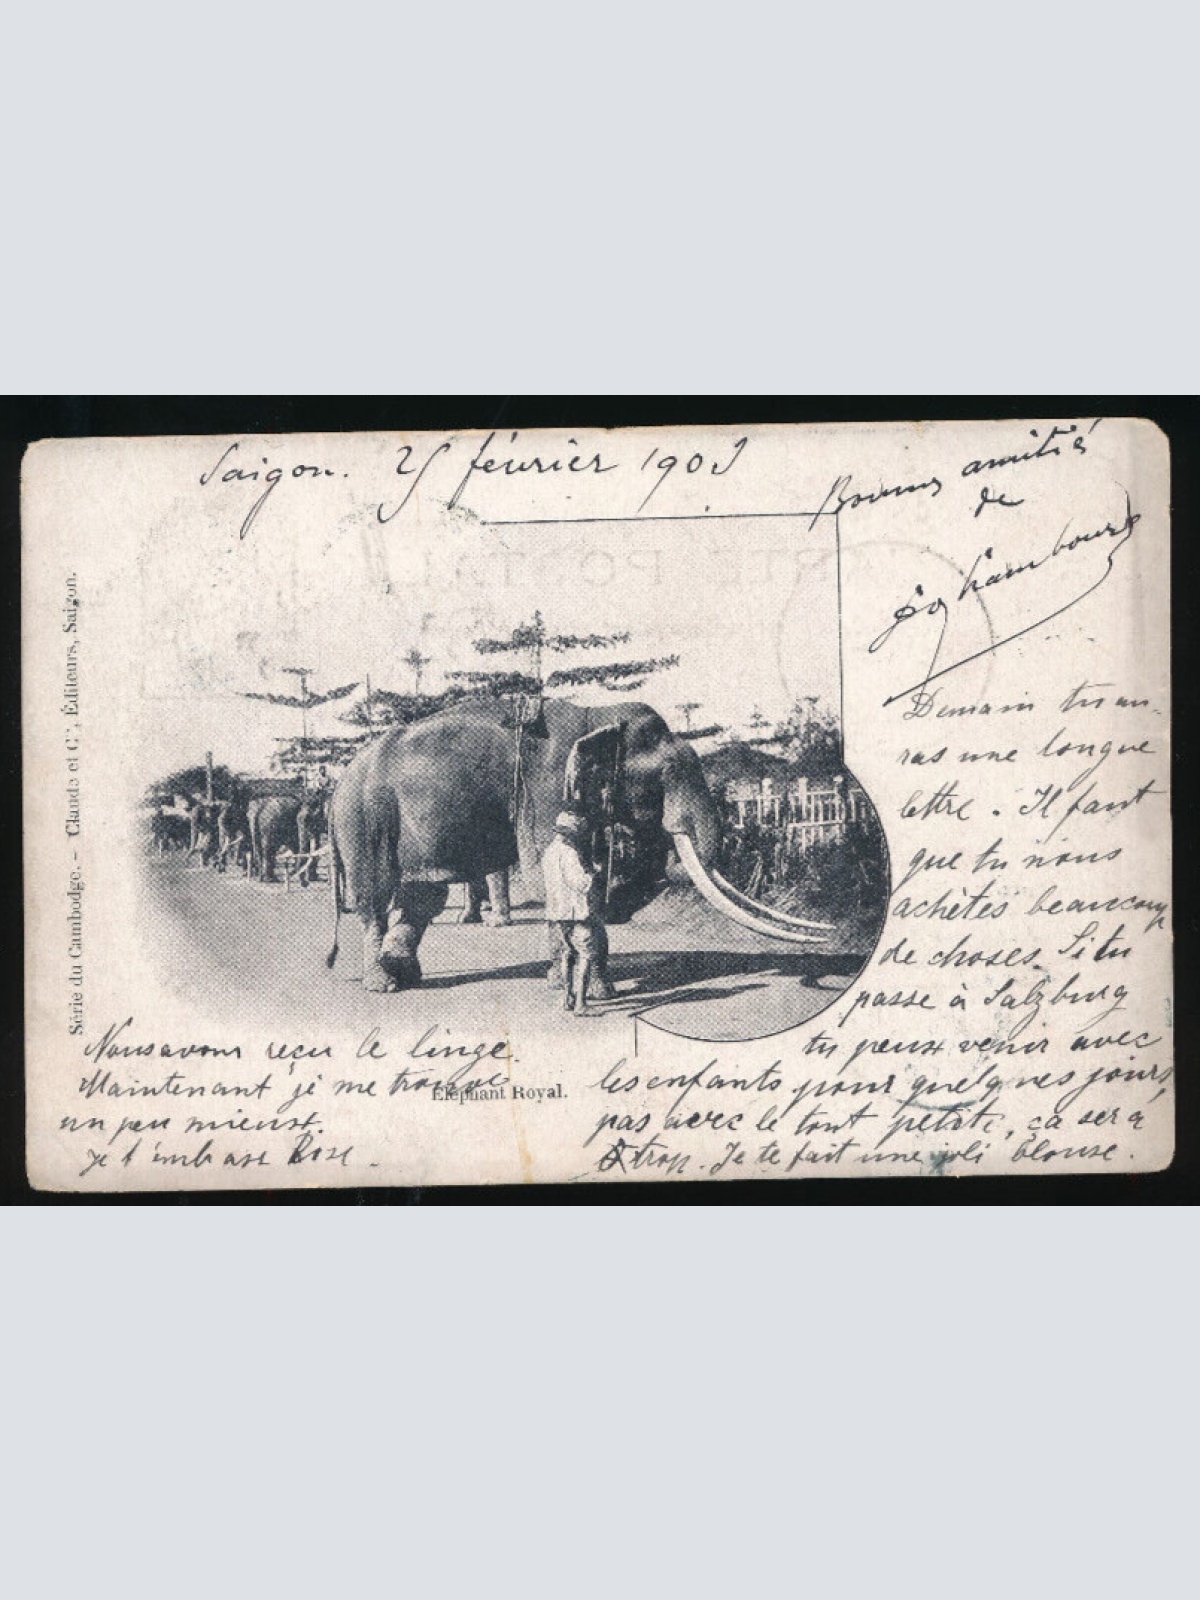 Saigon. 25 février 1903
Bonnes amitié
de
Demain tu au-
ras une longue
lettre. Il faut
que tu nous
achètes beaucoup
de choses. Si tu
passe à Salzburg
tu peux venir avec
les enfants pour quelques jours,
pas avec le tout petite, ça sera
trop. Je te fait une joli blouse.
Nous avons reçu le linge.
Maintenant je me trouve
un peu mieux.
je t'embrasse Rose.
Eléphant Royal.
Série du Cambodge. – Claude et Cie, Éditeurs, Saigon.